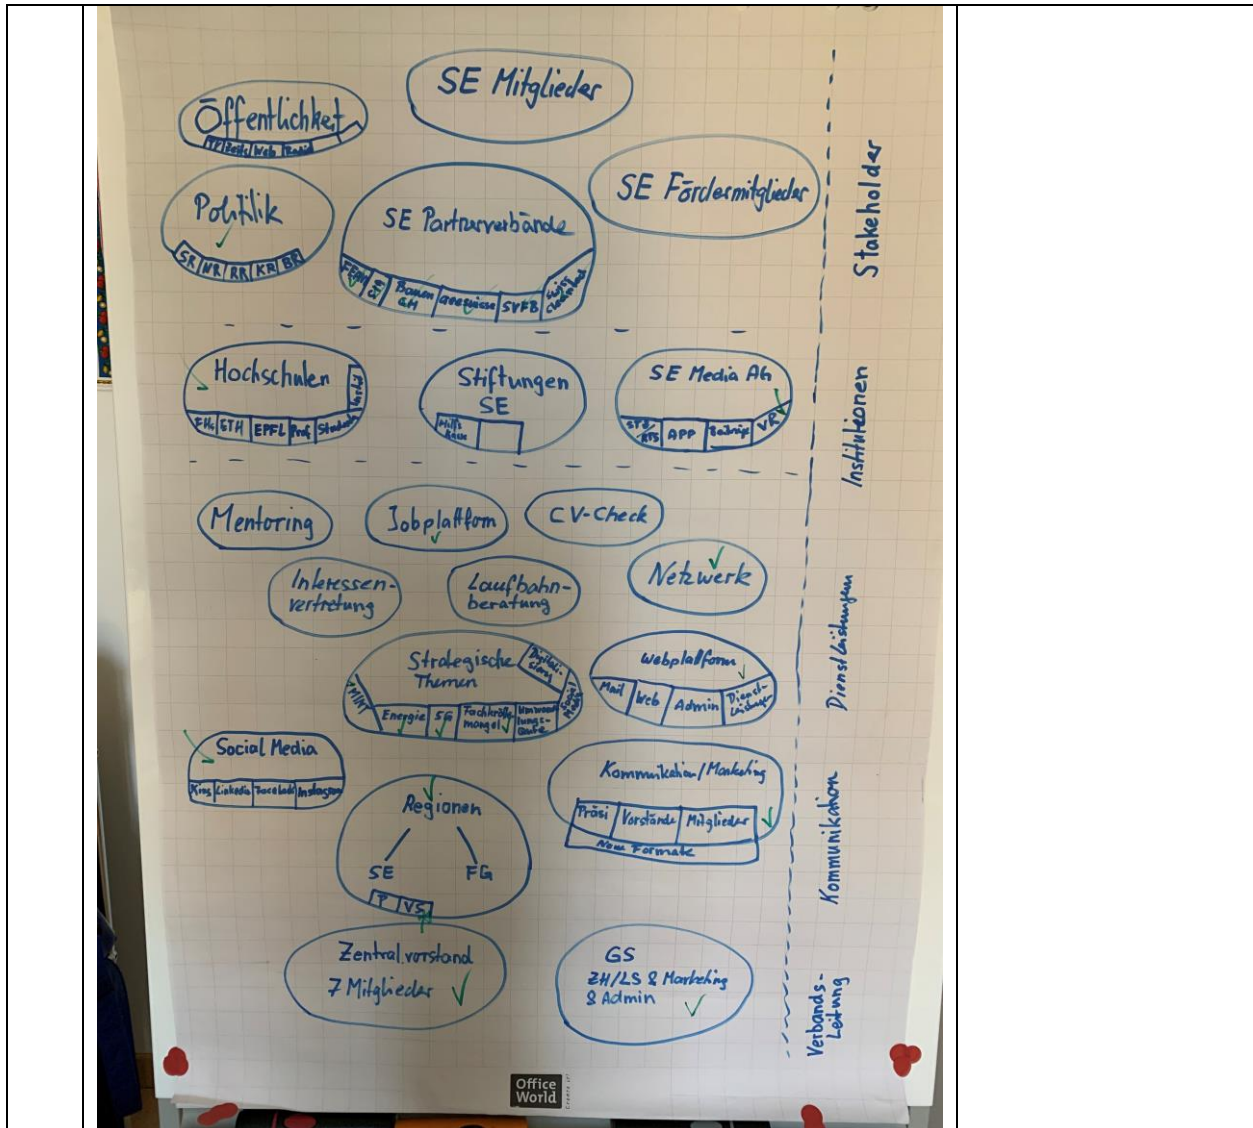 SE Mitglieder
Öffentlichkeit
Web
SE Fördermitglieder
Politik
SR NR RR KR BR
SE Partnerverbände
Bauen
CH
SVFB
Stakeholder
Hochschulen
FHs ETH EPFL Prof
Stiftungen
SE
SE Media AG
STS
RTS
APP
VR
Institutionen
Mentoring
Jobplattform
CV-Check
Interessen-
vertretung
Laufbahn-
beratung
Netzwerk
Strategische
Themen
Digitali-
sierung
MINT
Energie
5G
Fachkräfte
mangel
Social
Media
Webplattform
Mail Web Admin
Dienst-
Leistungen
Dienstleistungen
Social Media
Xing Linkedin Facebook Instagram
Regionen
SE FG
P VS
Kommunikation/Marketing
Präsi Vorstände Mitglieder
Neue Formate
Kommunikation
Zentralvorstand
7 Mitglieder
GS
ZH/LS & Marketing
& Admin
Verbands-
Leitung
Office
World